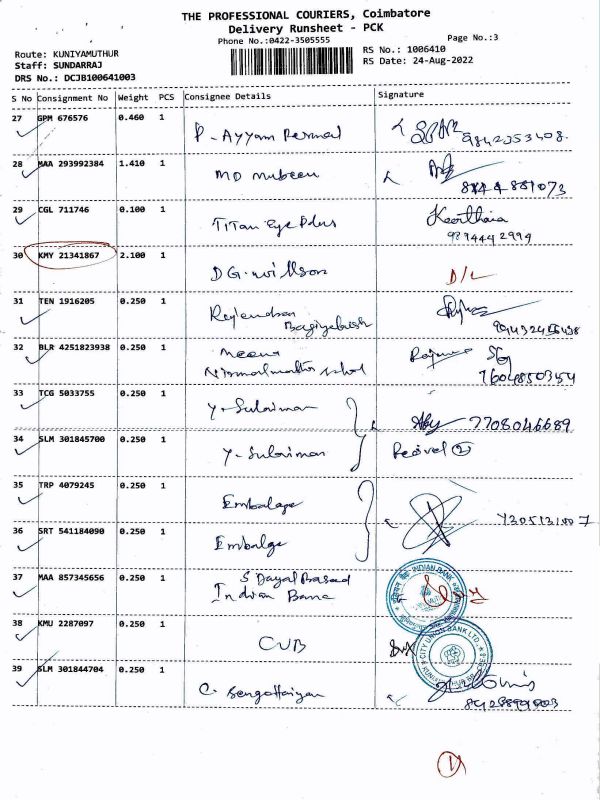 THE PROFESSIONAL COURIERS, Coimbatore
Delivery Runsheet - PCK
Phone No.:0422-3505555
Page No.:3
Route: KUNIYAMUTHUR
RS No.: 1006410
Staff: SUNDARRAJ
RS Date: 24-Aug-2022
DRS No.: DCJB100641003
S No Consignment No Weight PCS Consignee Details Signature
27 GPM 676576 0.460 1 P. Ayyam Permal
28 MAA 293992384 1.410 1 MD mubeen
29 CGL 711746 0.100 1 Titan Eye Plus Keerthaia
9894442994
30 KMY 21341867 2.100 1 DG. willson D/L
31 TEN 1916205 0.250 1
32 BLR 4251823938 0.250 1
7604850354
33 TCG 5033755 0.250 1 Y. Sulaiman 7708046689
34 SLM 301845700 0.250 1 Y. Sulaiman 2
35 TRP 4079245 0.250 1 Embalage
36 SRT 541184090 0.250 1 Embalge
37 MAA 857345656 0.250 1 S Dayal Basad
Indian Bank INDIAN BANK
38 KMU 2287097 0.250 1 CUB
CITY UNION BANK LTD.
39 SLM 301844704 0.250 1 C. Sengottaiyan
1